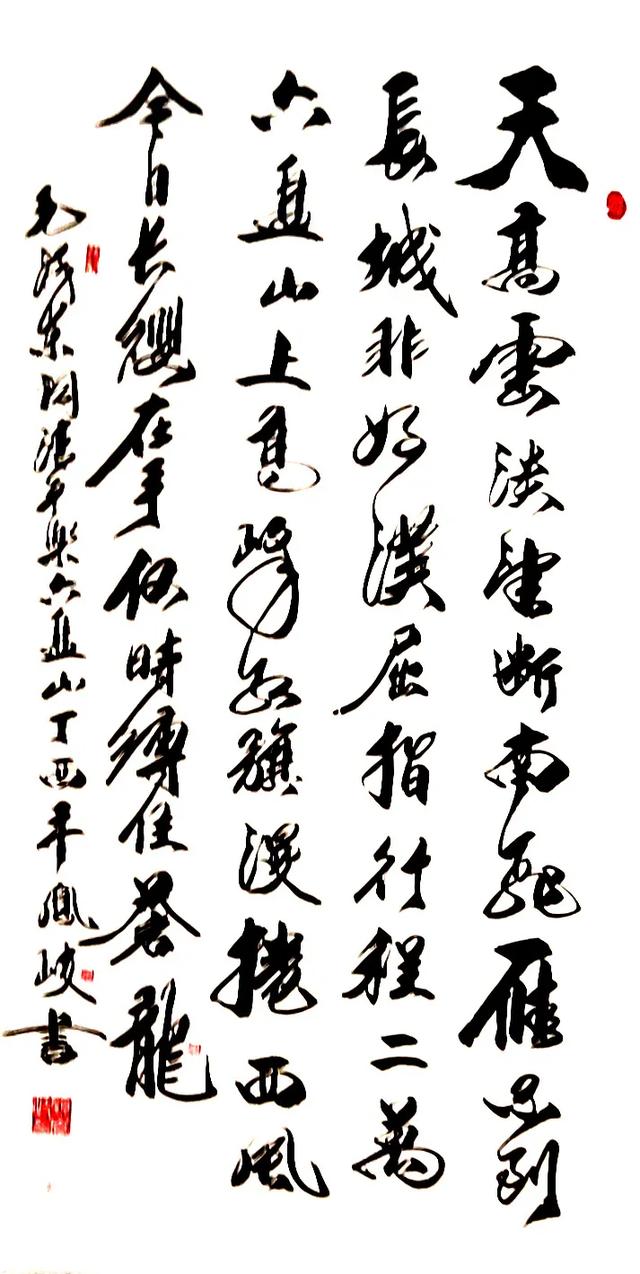 天高雲淡望斷南飛雁不到
長城非好漢屈指行程二萬
六盤山上高峰紅旗漫捲西風
今日长纓在手何時縛住蒼龍
毛澤東詞清平樂六盤山丁酉年鳳岐書